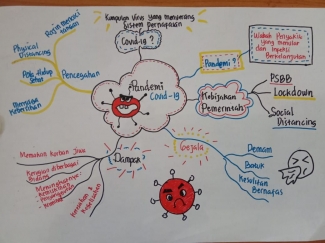 Rajin mencuci tangan
Kumpulan Virus yang menyerang
sistem Pernapasan
Covid-19 ?
Physical
Distancing
Pola Hidup
Sehat
Menjaga
Kebersihan
Pencegahan
Pandemi
Covid-19
Pandemi ?
Wabah Penyakit
yang menular
dan Infeksi
Berkelanjutan
Kebijakan
Pemerintah
PSBB
Lockdown
Social
Distancing
Memakan korban Jiwa
Kerugian diberbagai
Bidang
Dampak
Gejala
Demam
Batuk
Kesulitan
Bernafas